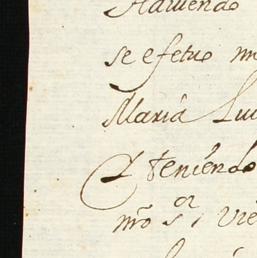 Haviendo
se efetuo
Maria Lui
Y teniendo
mro Sor, Vie